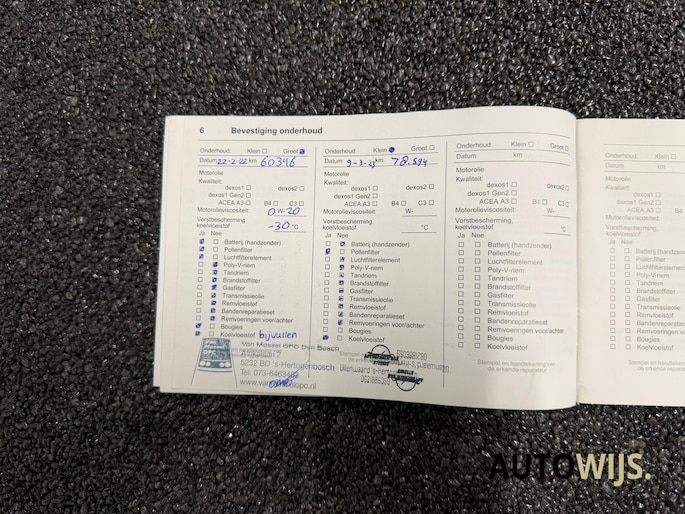 6 Bevestiging onderhoud
Onderhoud: Klein Groot
Datum 22-2-22 km 60346
Motorolie
Kwaliteit:
dexos1 dexos2
dexos1 Gen2
ACEA A3 B4 C3
Motorolieviscositeit: 0 W- 20
Vorstbescherming,
koelvloeistof -30 °C
Ja Nee
Batterij (handzender)
Pollenfilter
Luchtfilterelement
Poly-V-riem
Tandriem
Brandstoffilter
Gasfilter
Transmissieolie
Remvloeistof
Bandenreparatieset
Remvoeringen voor/achter
Bougies
Koelvloeistof bijvullen
Van Mossel OPC Den Bosch
5232 BD 's-Hertogenbosch
Tel. 073-
Onderhoud: Klein Groot
Datum 9-3-23 km 78.594
Motorolie
Kwaliteit:
dexos1 dexos2
dexos1 Gen2
ACEA A3 B4 C3
Motorolieviscositeit: W-
Vorstbescherming,
koelvloeistof °C
Ja Nee
Batterij (handzender)
Pollenfilter
Luchtfilterelement
Poly-V-riem
Tandriem
Brandstoffilter
Gasfilter
Transmissieolie
Remvloeistof
Bandenreparatieset
Remvoeringen voor/achter
Bougies
Koelvloeistof
Onderhoud: Klein Groot
Datum km
Motorolie
Kwaliteit:
dexos1 dexos2
dexos1 Gen2
ACEA A3 B4 C3
Motorolieviscositeit: W-
Vorstbescherming,
koelvloeistof °C
Ja Nee
Batterij (handzender)
Pollenfilter
Luchtfilterelement
Poly-V-riem
Tandriem
Brandstoffilter
Gasfilter
Transmissieolie
Remvloeistof
Bandenreparatieset
Remvoeringen voor/achter
Bougies
Koelvloeistof
Stempel en handtekening van
de erkende reparateur
Onderhoud: Klein
Datum km
Motorolie
Kwaliteit:
dexos1
dexos1 Gen2
ACEA A3
Motorolieviscositeit:
Vorstbescherming,
koelvloeistof
Ja Nee
Batterij (handzender)
Pollenfilter
Luchtfilterelement
Poly-V-riem
Tandriem
Brandstoffilter
Gasfilter
Transmissieolie
Remvloeistof
Bandenreparatieset
Remvoeringen voor/achter
Bougies
Koelvloeistof
AUTOWIJS.